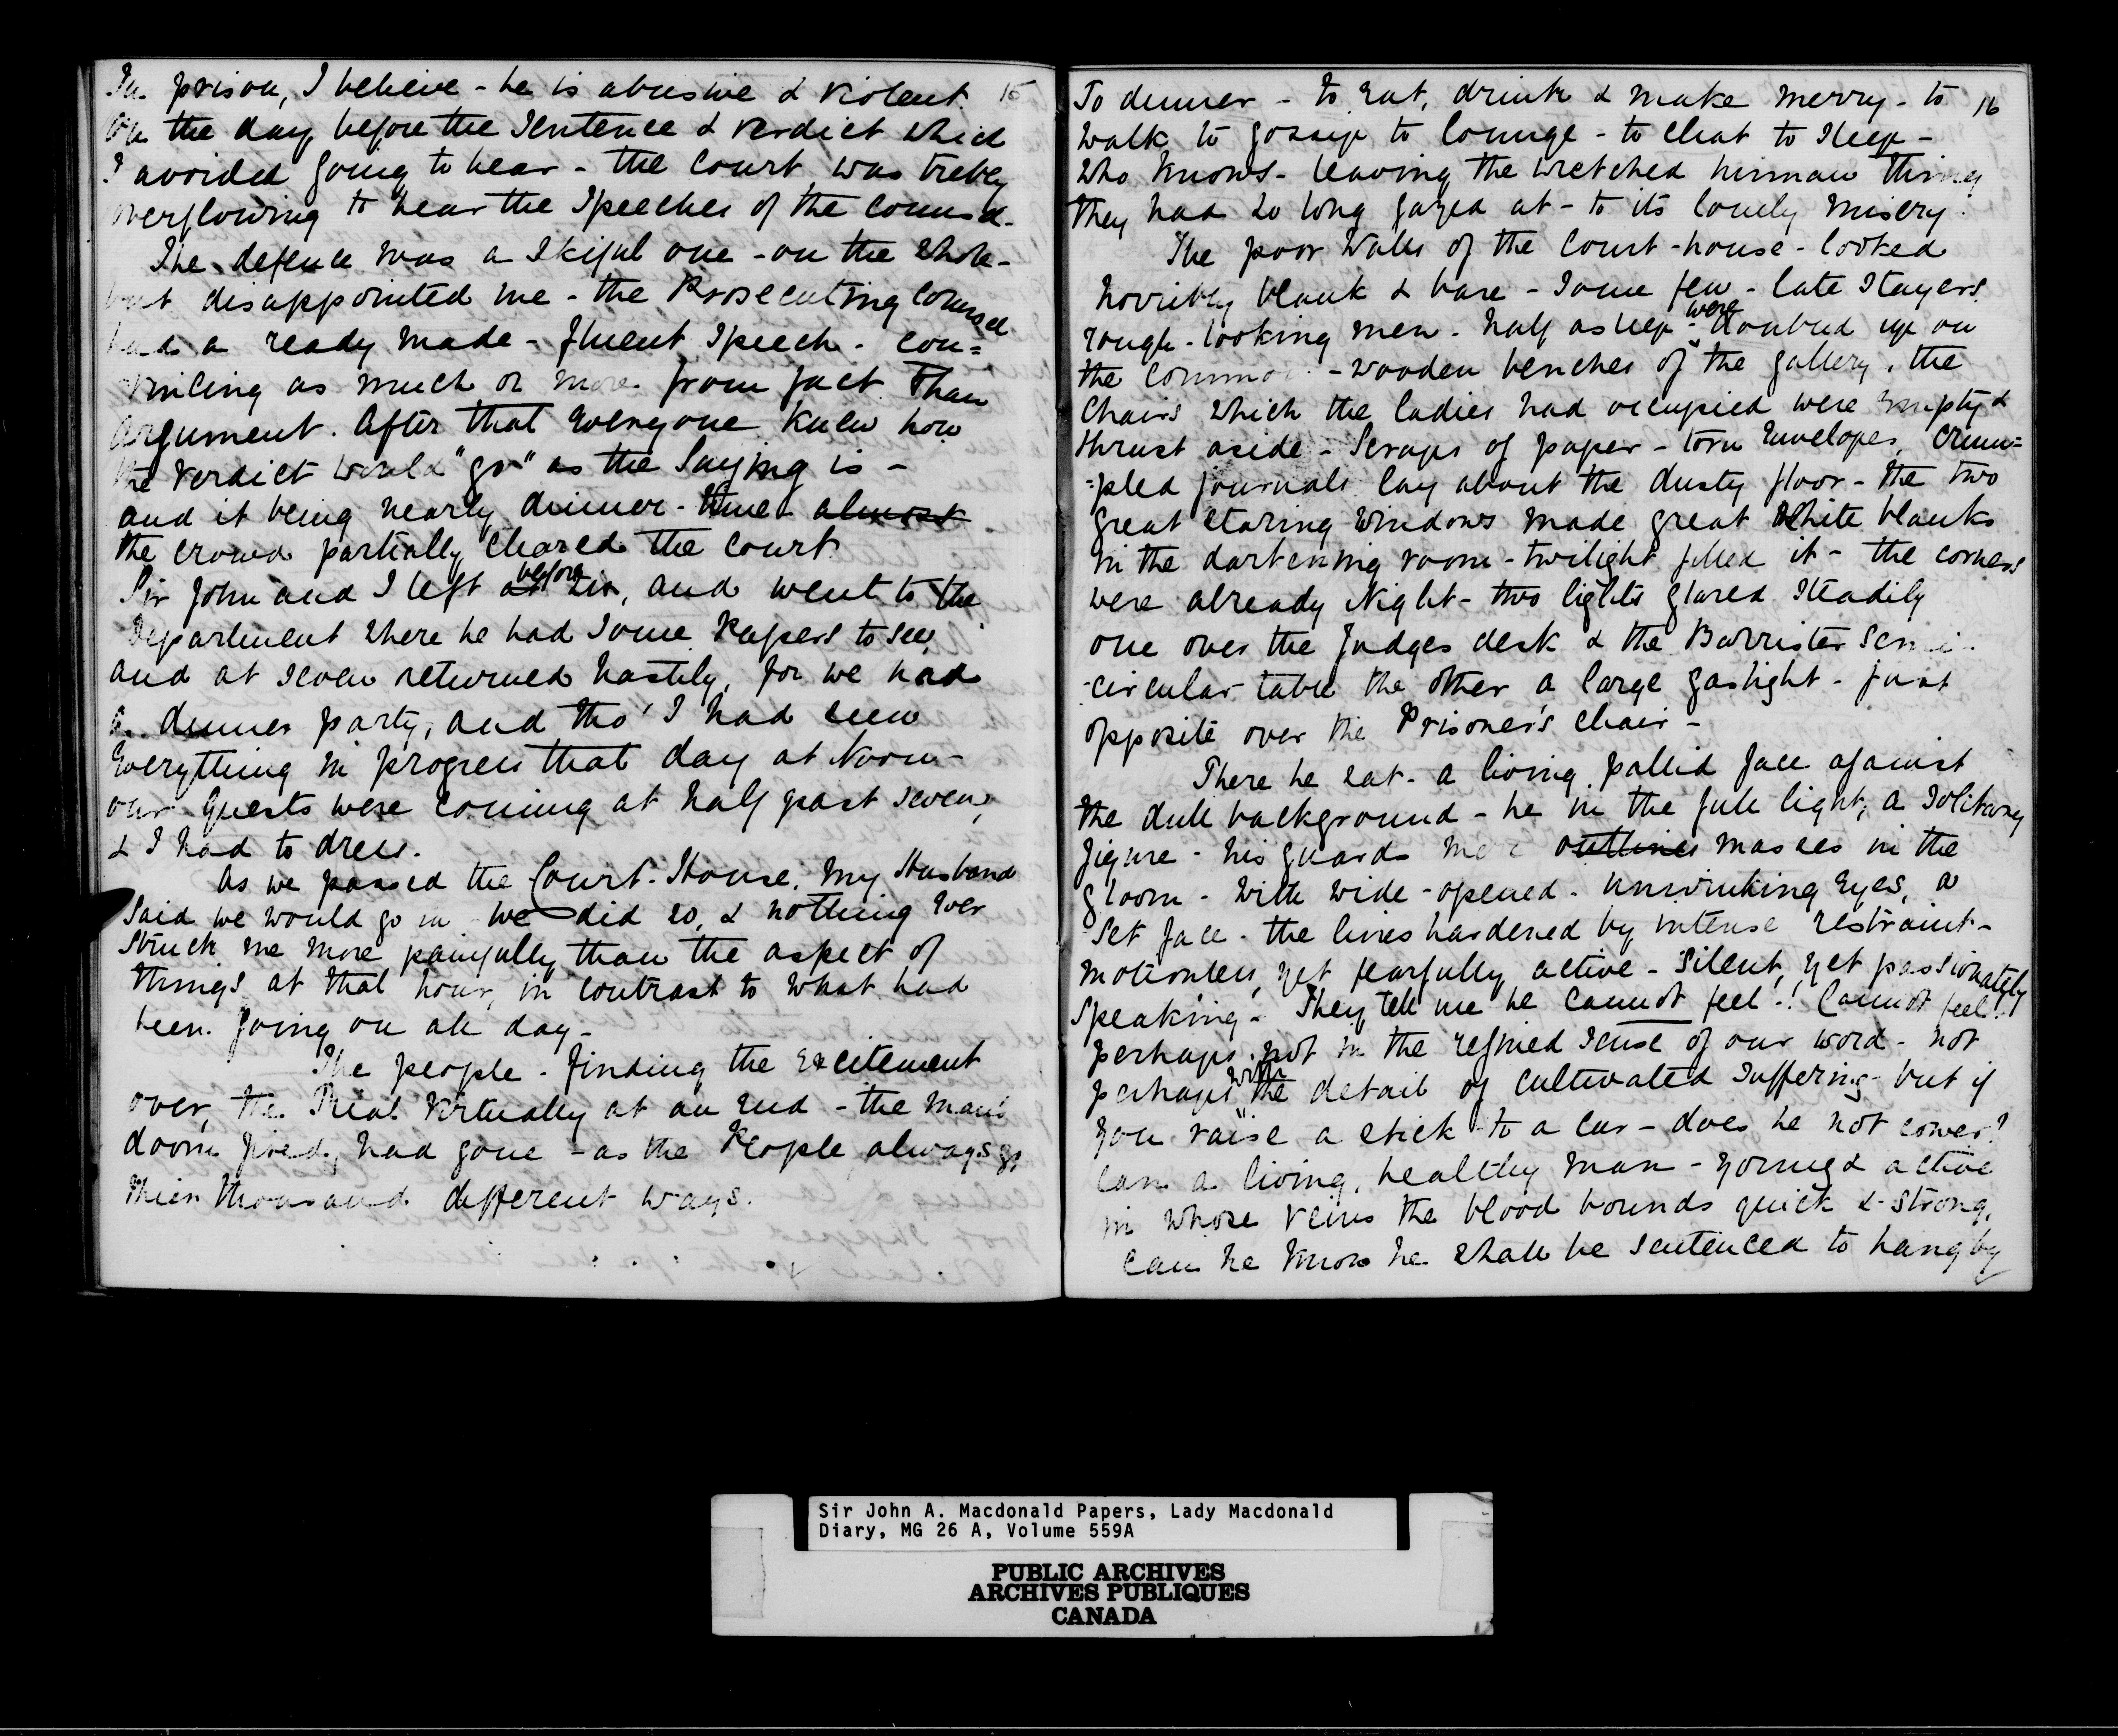 In prison, I believe - he is abusive & violent. 15
On the day before the Sentence & verdict which
I avoided going to hear - the Court was trebly
overflowing to hear the Speeches of the Counsel.
The defence was a skiful one - on the whole -
but disappointed me - the Prosecuting Counsel
had a ready made - fluent Speech - con=
vincing as much or more from fact than
argument. After that everyone knew how
the verdict would "go" as the Saying is -
and it being nearly dinner-time almost
the crowd partially cleared the Court.
Sir John and I left at before six, and went to the
Department where he had some Papers to see,
and at seven returned hastily, for we had
a dinner party, and tho' I had seen
everything in progress that day at Noon -
our Guests were coming at half past seven,
& I had to dress.
As we passed the Court-House, my Husband
said we would go in - we did so, & nothing ever
struck me more painfully than the aspect of
things at that hour, in contrast to what had
been going on all day -
The people - finding the excitement
over, the Trial virtually at an end - the man's
doom fixed, had gone - as the People always go
their thousand different ways.
To dinner - to eat, drink & make merry - to 16
walk to gossip to lounge - to chat to sleep -
who knows - leaving the wretched human thing
they had so long gazed at - to its lonely misery.
The poor walls of the Court-house - looked
horribly blank & bare - some few - late stayers,
rough-looking men - half asleep - were doubled up on
the common - wooden benches of the gallery, the
Chairs which the ladies had occupied were empty &
thrust aside - Scraps of paper - torn envelopes, crum=
=pled journals lay about the dusty floor - the two
great staring windows made great white blanks
in the darkening room - twilight filled it - the corners
were already Night - two lights glared steadily
one over the Judges desk & the Barrister semi-
-circular table the other a large gaslight - just
opposite over the Prisoner's chair -
There he sat - a living pallid face against
the dull background - he in the full light, a solitary
figure - his guards mere outlines masses in the
gloom - with wide-opened - unwinking eyes, a
Set face - the lines hardened by intense restraint -
motionless, yet fearfully active - silent, yet passionately
speaking - They tell me he cannot feel -! Cannot feel!
perhaps not in the refined sense of our word - not
perhaps with the detail of cultivated suffering - but if
you raise a stick to a cur - does he not cower?
Can a living, healthy man - young & active
in whose veins the blood bounds quick & strong,
can he know he shall be sentenced to hang by
Sir John A. Macdonald Papers, Lady Macdonald
Diary, MG 26 A, Volume 559A
PUBLIC ARCHIVES
ARCHIVES PUBLIQUES
CANADA